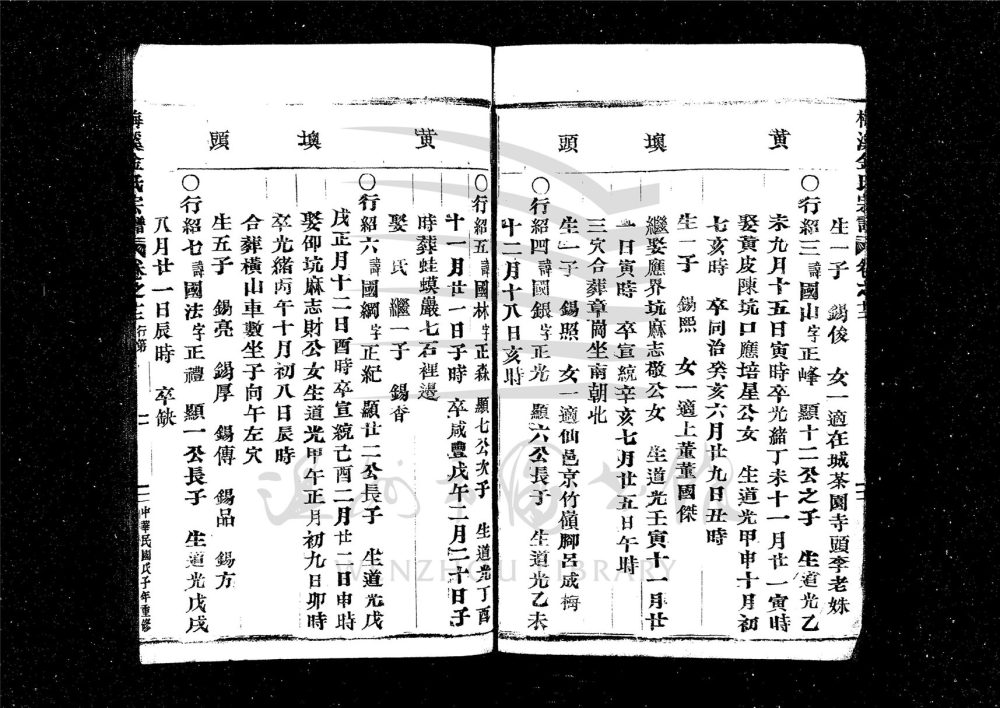 梅溪金氏宗譜
黃墺頭
生一子 錫俊 女一適在城茶園寺頭李老姝
○行紹三諱國山字正峰 顯十二公之子 生道光乙
未九月十五日寅時卒光緒丁未十一月廿一寅時
娶黃皮陳坑口應培星公女 生道光甲申十月初
七亥時 卒同治癸亥六月廿九日丑時
生一子 錫熙 女一適上董董國傑
繼娶應界坑麻志敬公女 生道光壬寅十一月廿
一日寅時 卒宣統辛亥七月廿五日午時
三穴合葬章崗坐南朝北
生一子 錫照 女一適仙邑京竹嶺腳呂成梅
○行紹四諱國銀字正光 顯六公長子 生道光乙未
十二月十八日亥時
黃墺頭
○行紹五諱國林字正森 顯七公次子 生道光丁酉
十一月廿一日子時 卒咸豐戊午二月二十日子
時葬蛙蟆巖七石裡邊
娶 氏 繼一子 錫香
○行紹六諱國綱字正紀 顯廿二公長子 生道光戊
戌正月十二日酉時卒宣統己酉二月廿二日申時
娶仰坑麻志財公女生道光甲午正月初九日卯時
卒光緒丙午十月初八日辰時
合葬橫山車數坐子向午左穴
生五子 錫亮 錫厚 錫傳 錫品 錫方
○行紹七諱國法字正禮 顯一公長子 生道光戊戌
八月廿一日辰時 卒缺
梅溪金氏宗譜 卷之三 行第
中華民國戊子年重修
溫州市圖書館
WENZHOU LIBRARY